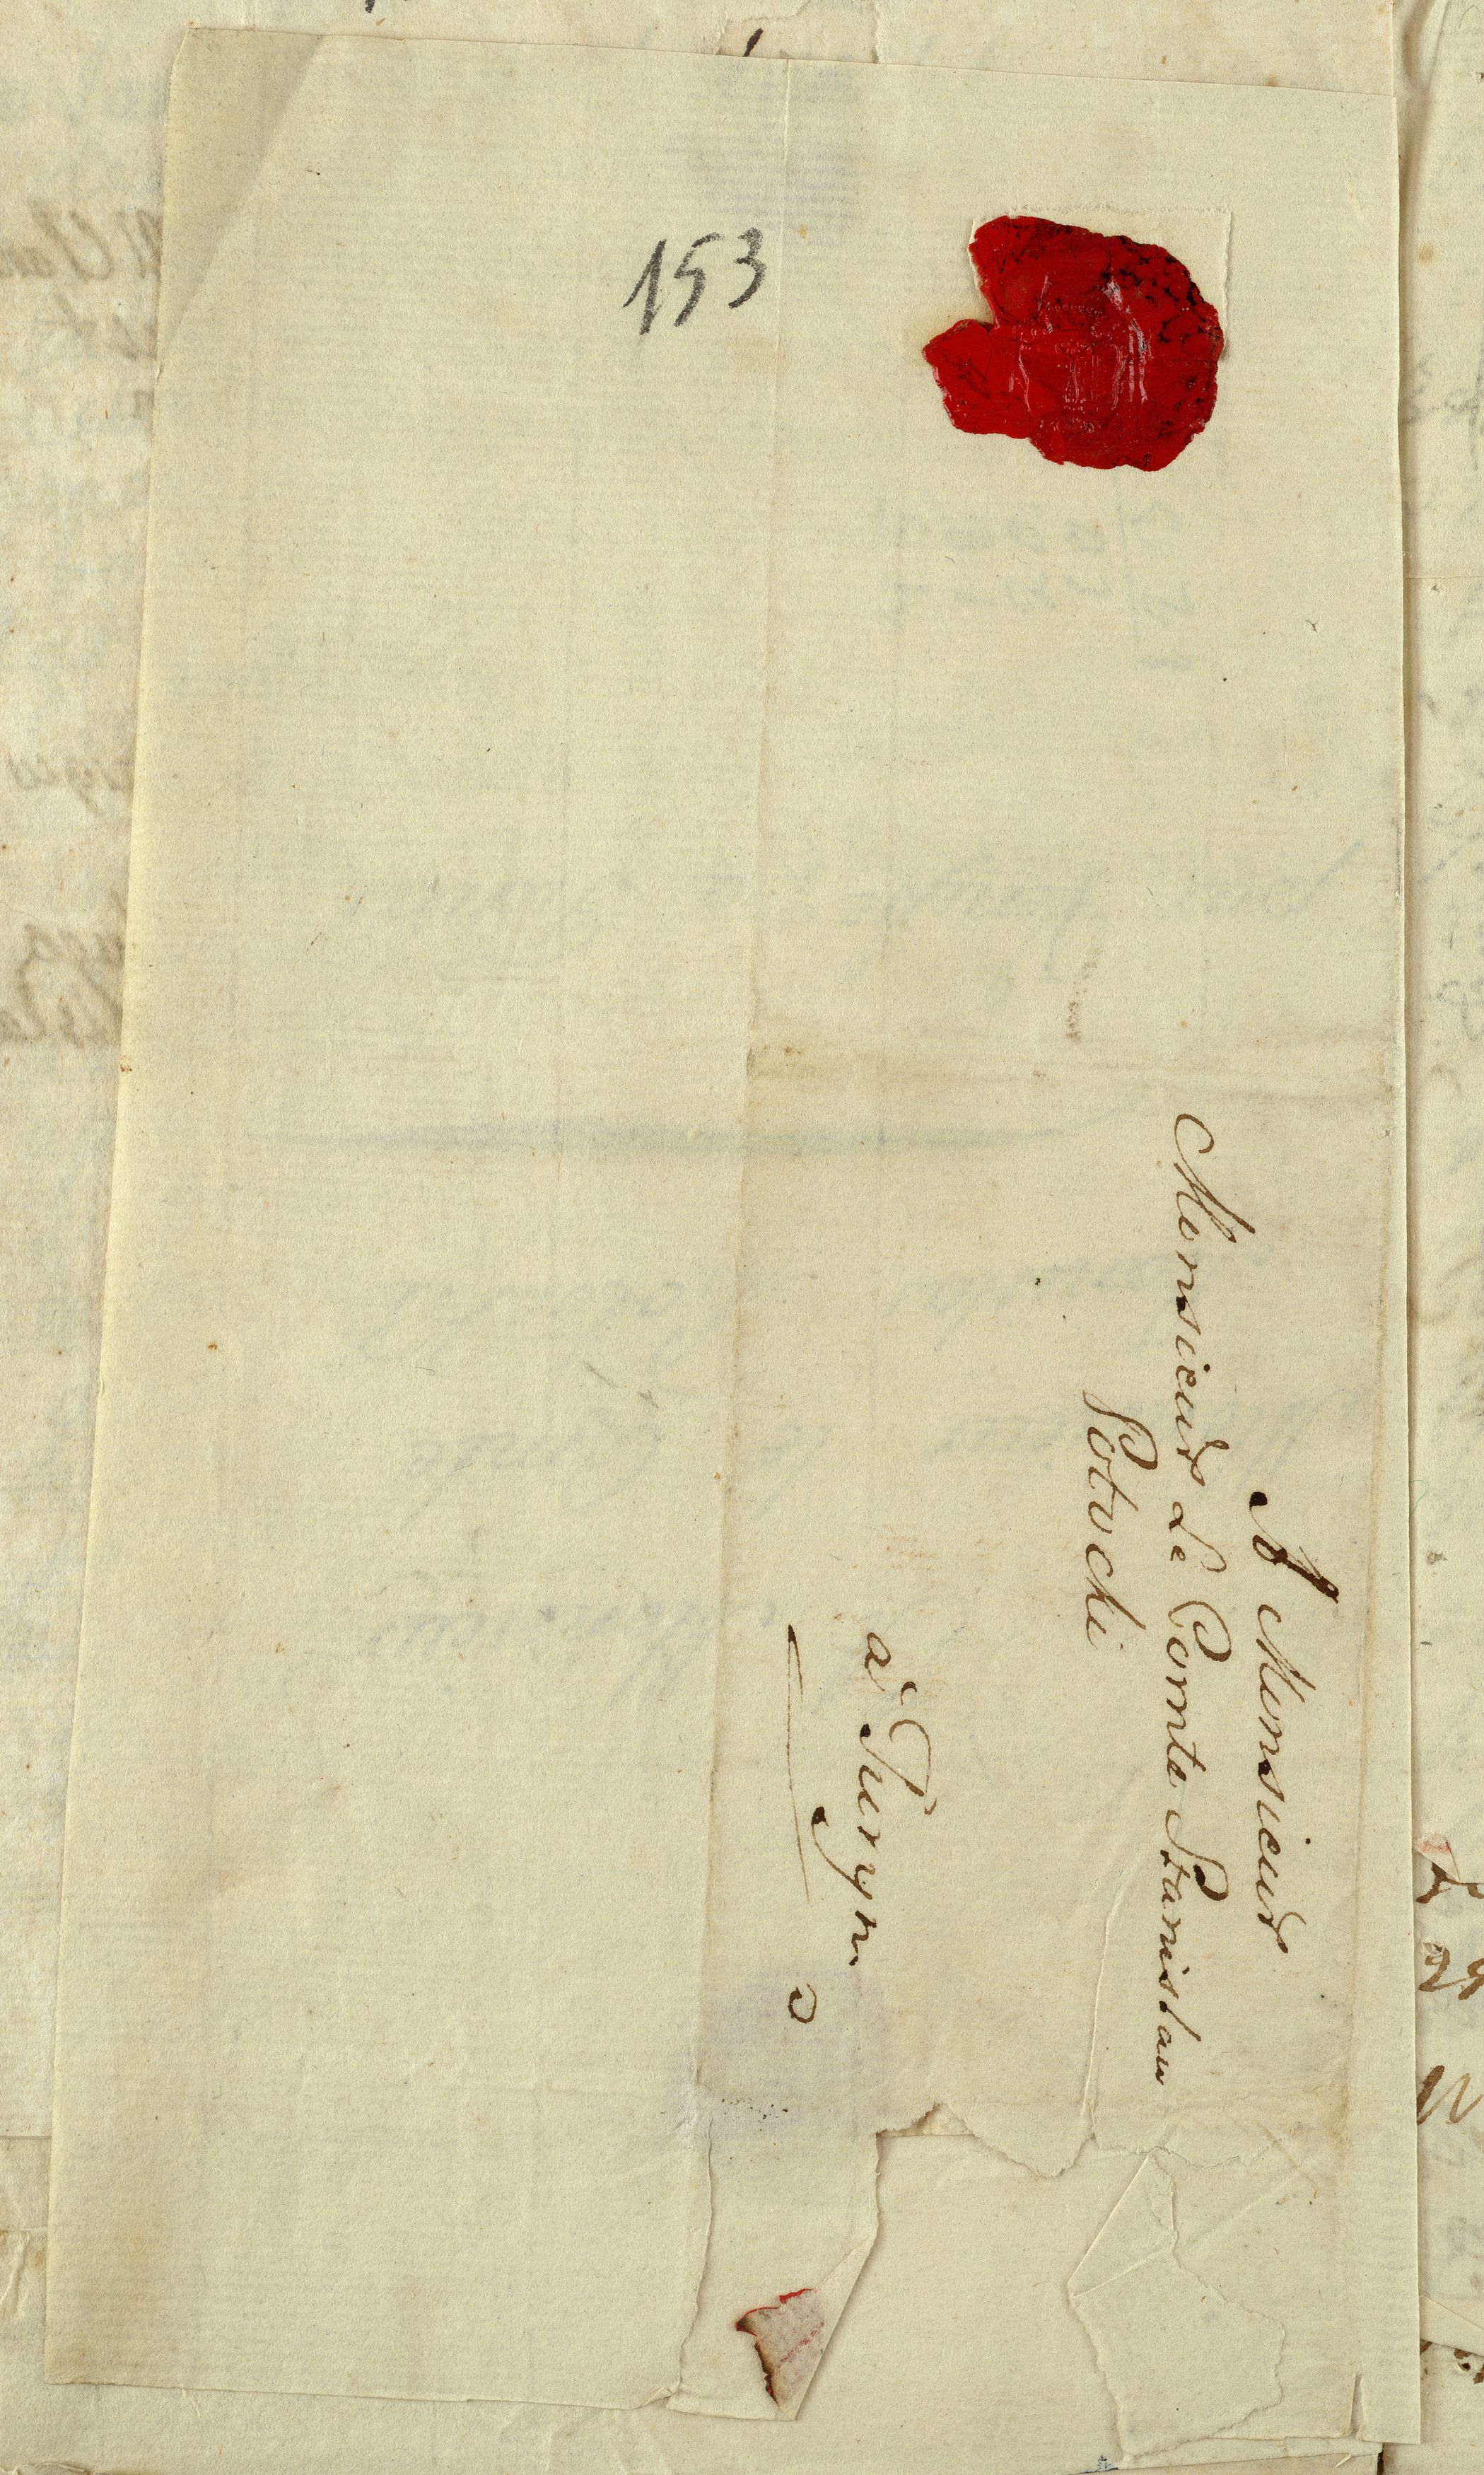 153
A Monsieur
Monsieur Le Comte Stanislau
Potocki
a Turyn